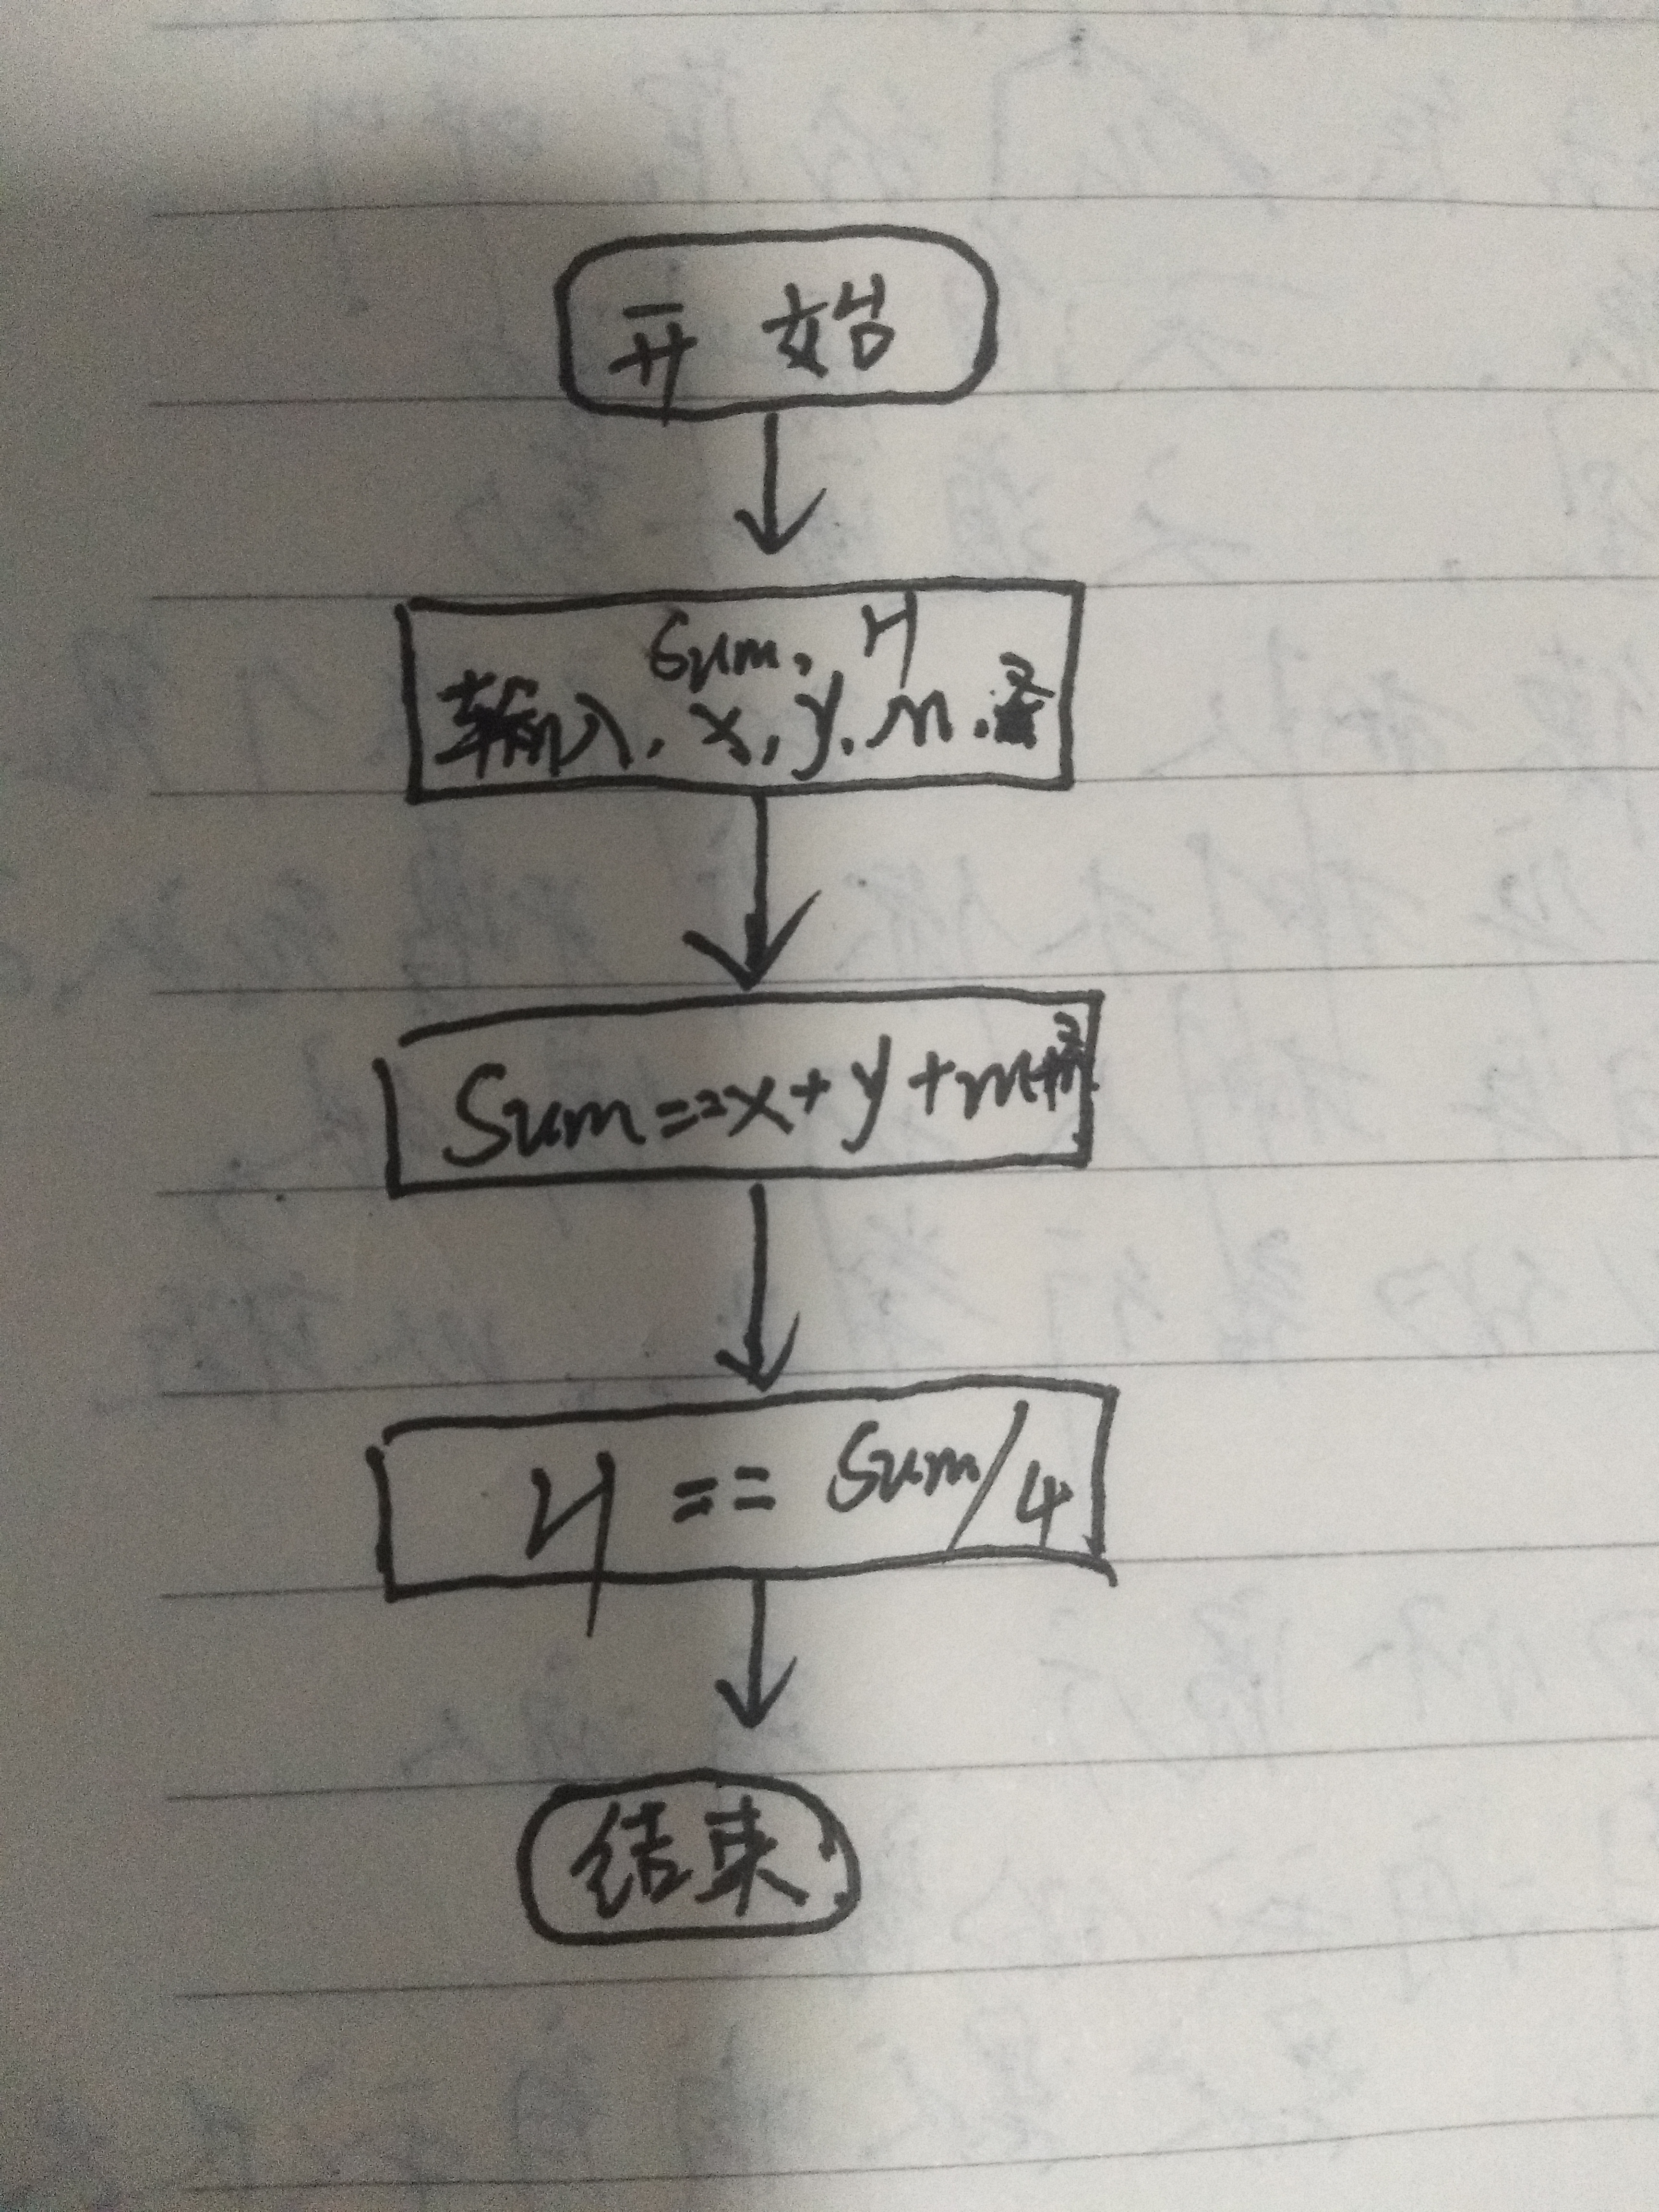 开始
Sum, H
输入, x, y, m, z
Sum==x+y+m+z
H == Sum/4
结束